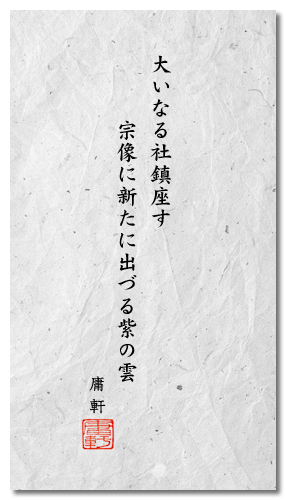 大いなる社鎮座す
宗像に新たに出づる紫の雲
庸軒
庸軒